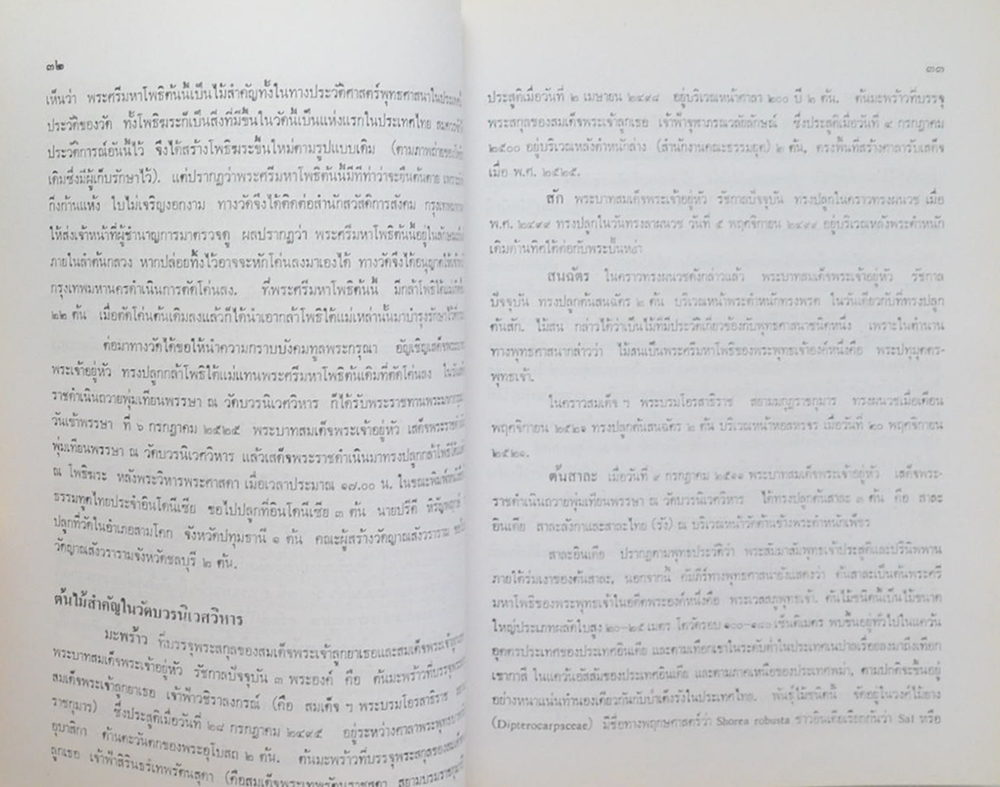 ๓๒
เห็นว่า พระศรีมหาโพธิต้นนี้เป็นไม้สำคัญทั้งในทางประวัติศาสตร์พุทธศาสนาในประเทศ
ประวัติของวัด ทั้งโพธิฆระก็เป็นสิ่งที่มีขึ้นในวัดนี้เป็นแห่งแรกในประเทศไทย
ประวัติการณ์อันนี้ไว้ จึงได้สร้างโพธิฆระขึ้นใหม่ตามรูปแบบเดิม (ตามภาพถ่ายของ
เดิมซึ่งมีผู้เก็บรักษาไว้). แต่ปรากฏว่าพระศรีมหาโพธิต้นนี้มีทีท่าว่าจะยืนต้นตาย
กิ่งก้านแห้ง ใบไม่เจริญงอกงาม ทางวัดจึงได้ติดต่อสำนักสวัสดิการสังคม
ให้ส่งเจ้าหน้าที่ผู้ชำนาญการมาตรวจดู ผลปรากฏว่า พระศรีมหาโพธิต้นนี้อยู่ในลักษณะ
ภายในลำต้นกลวง หากปล่อยทิ้งไว้อาจจะหักโค่นลงมาเองได้ ทางวัดจึงได้อนุญาตให้
กรุงเทพมหานครดำเนินการตัดโค่นลง. ที่พระศรีมหาโพธิต้นนี้ มีกล้าโพธิได้แม่
๒๒ ต้น เมื่อตัดโค่นต้นเดิมลงแล้วก็ได้นำเอากล้าโพธิได้แม่เหล่านั้นมาบำรุงรักษาไว้
ต่อมาทางวัดได้ขอให้นำความกราบบังคมทูลพระกรุณา อัญเชิญเสด็จ
พระเจ้าอยู่หัว ทรงปลูกกล้าโพธิได้แม่แทนพระศรีมหาโพธิต้นเดิมที่ตัดโค่นลง
ราชดำเนินถวายพุ่มเทียนพรรษา ณ วัดบวรนิเวศวิหาร ก็ได้รับพระราชทานพระมหากรุณา
วันเข้าพรรษา ที่ ๖ กรกฎาคม ๒๕๒๕ พระบาทสมเด็จพระเจ้าอยู่หัว เสด็จพระราชดำเนิน
พุ่มเทียนพรรษา ณ วัดบวรนิเวศวิหาร แล้วเสด็จพระราชดำเนินมาทรงปลูกกล้าโพธิได้แม่
ณ โพธิฆระ หลังพระวิหารพระศาสดา เมื่อเวลาประมาณ ๑๗.๐๐ น. ในขณะพิมพ์หนังสือนี้
ธรรมทูตไทยประจำอินโดนีเซีย ขอไปปลูกที่อินโดนีเซีย ๓ ต้น นายปรีดี หิรัญพฤกษ์
ปลูกที่วัดในอำเภอสามโคก จังหวัดปทุมธานี ๑ ต้น คณะผู้สร้างวัดญาณสังวราราม
วัดญาณสังวรารามจังหวัดชลบุรี ๒ ต้น.
ต้นไม้สำคัญในวัดบวรนิเวศวิหาร
มะพร้าว ที่บรรจุพระสกุลของสมเด็จพระเจ้าลูกยาเธอและสมเด็จพระเจ้าลูกเธอ
พระบาทสมเด็จพระเจ้าอยู่หัว รัชกาลปัจจุบัน ๓ พระองค์ คือ ต้นมะพร้าวที่บรรจุพระสกุล
สมเด็จพระเจ้าลูกยาเธอ เจ้าฟ้าวชิราลงกรณ์ (คือ สมเด็จ ฯ พระบรมโอรสาธิราช
ราชกุมาร) ซึ่งประสูติเมื่อวันที่ ๒๘ กรกฎาคม ๒๔๙๕ อยู่ระหว่างศาลาพระพุทธบาทกับ
อุบาสิกา ด้านตะวันตกของพระอุโบสถ ๒ ต้น. ต้นมะพร้าวที่บรรจุพระสกุลของสมเด็จ
ลูกเธอ เจ้าฟ้าสิรินธรเทพรัตนสุดา (คือสมเด็จพระเทพรัตนราชสุดา สยามบรมราชกุมารี)
๓๓
ประสูติเมื่อวันที่ ๒ เมษายน ๒๔๙๘ อยู่บริเวณหน้าศาลา ๒๐๐ ปี ๒ ต้น. ต้นมะพร้าวที่บรรจุ
พระสกุลของสมเด็จพระเจ้าลูกเธอ เจ้าฟ้าจุฬาภรณวลัยลักษณ์ ซึ่งประสูติเมื่อวันที่ ๔ กรกฎาคม
๒๕๐๐ อยู่บริเวณหลังตำหนักล่าง (สำนักงานคณะธรรมยุต) ๒ ต้น, ตรงพื้นที่สร้างศาลารับเสด็จ
เมื่อ พ.ศ. ๒๕๒๕.
สัก พระบาทสมเด็จพระเจ้าอยู่หัว รัชกาลปัจจุบัน ทรงปลูกในคราวทรงผนวช เมื่อ
พ.ศ. ๒๔๙๙ ทรงปลูกในวันทรงลาผนวช วันที่ ๕ พฤศจิกายน ๒๔๙๙ อยู่บริเวณหลังพระตำหนัก
เดิมด้านทิศใต้ต่อกับพระปั้นหย่า
สนฉัตร ในคราวทรงผนวชดังกล่าวแล้ว พระบาทสมเด็จพระเจ้าอยู่หัว รัชกาล
ปัจจุบัน ทรงปลูกต้นสนฉัตร ๒ ต้น บริเวณหน้าพระตำหนักทรงพรต ในวันเดียวกับที่ทรงปลูก
ต้นสัก. ไม้สน กล่าวได้ว่าเป็นไม้ที่มีประวัติเกี่ยวข้องกับพุทธศาสนาชนิดหนึ่ง เพราะในตำนาน
ทางพุทธศาสนากล่าวว่า ไม้สนเป็นพระศรีมหาโพธิของพระพุทธเจ้าองค์หนึ่งคือ พระปทุมุตตร-
พุทธเจ้า.
ในคราวสมเด็จ ฯ พระบรมโอรสาธิราช สยามมกุฎราชกุมาร ทรงผนวชเมื่อเดือน
พฤศจิกายน ๒๕๒๑ ทรงปลูกต้นสนฉัตร ๒ ต้น บริเวณหน้าหอสหจร เมื่อวันที่ ๒๐ พฤศจิกายน
๒๕๒๑.
ต้นสาละ เมื่อวันที่ ๙ กรกฎาคม ๒๕๑๑ พระบาทสมเด็จพระเจ้าอยู่หัว เสด็จพระ-
ราชดำเนินถวายพุ่มเทียนพรรษา ณ วัดบวรนิเวศวิหาร ได้ทรงปลูกต้นสาละ ๓ ต้น คือ สาละ
อินเดีย สาละลังกาและสาละไทย (รัง) ณ บริเวณหน้าวัดด้านข้างพระตำหนักเพ็ชร
สาละอินเดีย ปรากฏตามพุทธประวัติว่า พระสัมมาสัมพุทธเจ้าประสูติและปรินิพพาน
ภายใต้ร่มเงาของต้นสาละ, นอกจากนี้ คัมภีร์ทางพุทธศาสนายังแสดงว่า ต้นสาละเป็นต้นพระศรี
มหาโพธิของพระพุทธเจ้าในอดีตพระองค์หนึ่งคือ พระเวสสภูพุทธเจ้า. ต้นไม้ชนิดนี้เป็นไม้ขนาด
ใหญ่ประเภทผลัดใบสูง ๒๐-๒๕ เมตร โตวัดรอบ ๑๐๐-๑๘๐ เซ็นติเมตร พบขึ้นอยู่ทั่วไปในแคว้น
อุตตรประเทศของประเทศอินเดีย และตามเทือกเขาในระดับต่ำในประเทศเนปาลเรื่อยลงมาถึงเทือก
เขากาสี ในแคว้นอัสสัมของประเทศอินเดีย และตามภาคเหนือของประเทศพม่า, ตามปกติจะขึ้นอยู่
อย่างหนาแน่นทำนองเดียวกันกับป่าเต็งรังในประเทศไทย. พันธุ์ไม้ชนิดนี้ จัดอยู่ในวงศ์ไม้ยาง
(Dipterocarpaceae) มีชื่อทางพฤกษศาสตร์ว่า Shorea robusta ชาวอินเดียเรียกกันว่า Sal หรือ